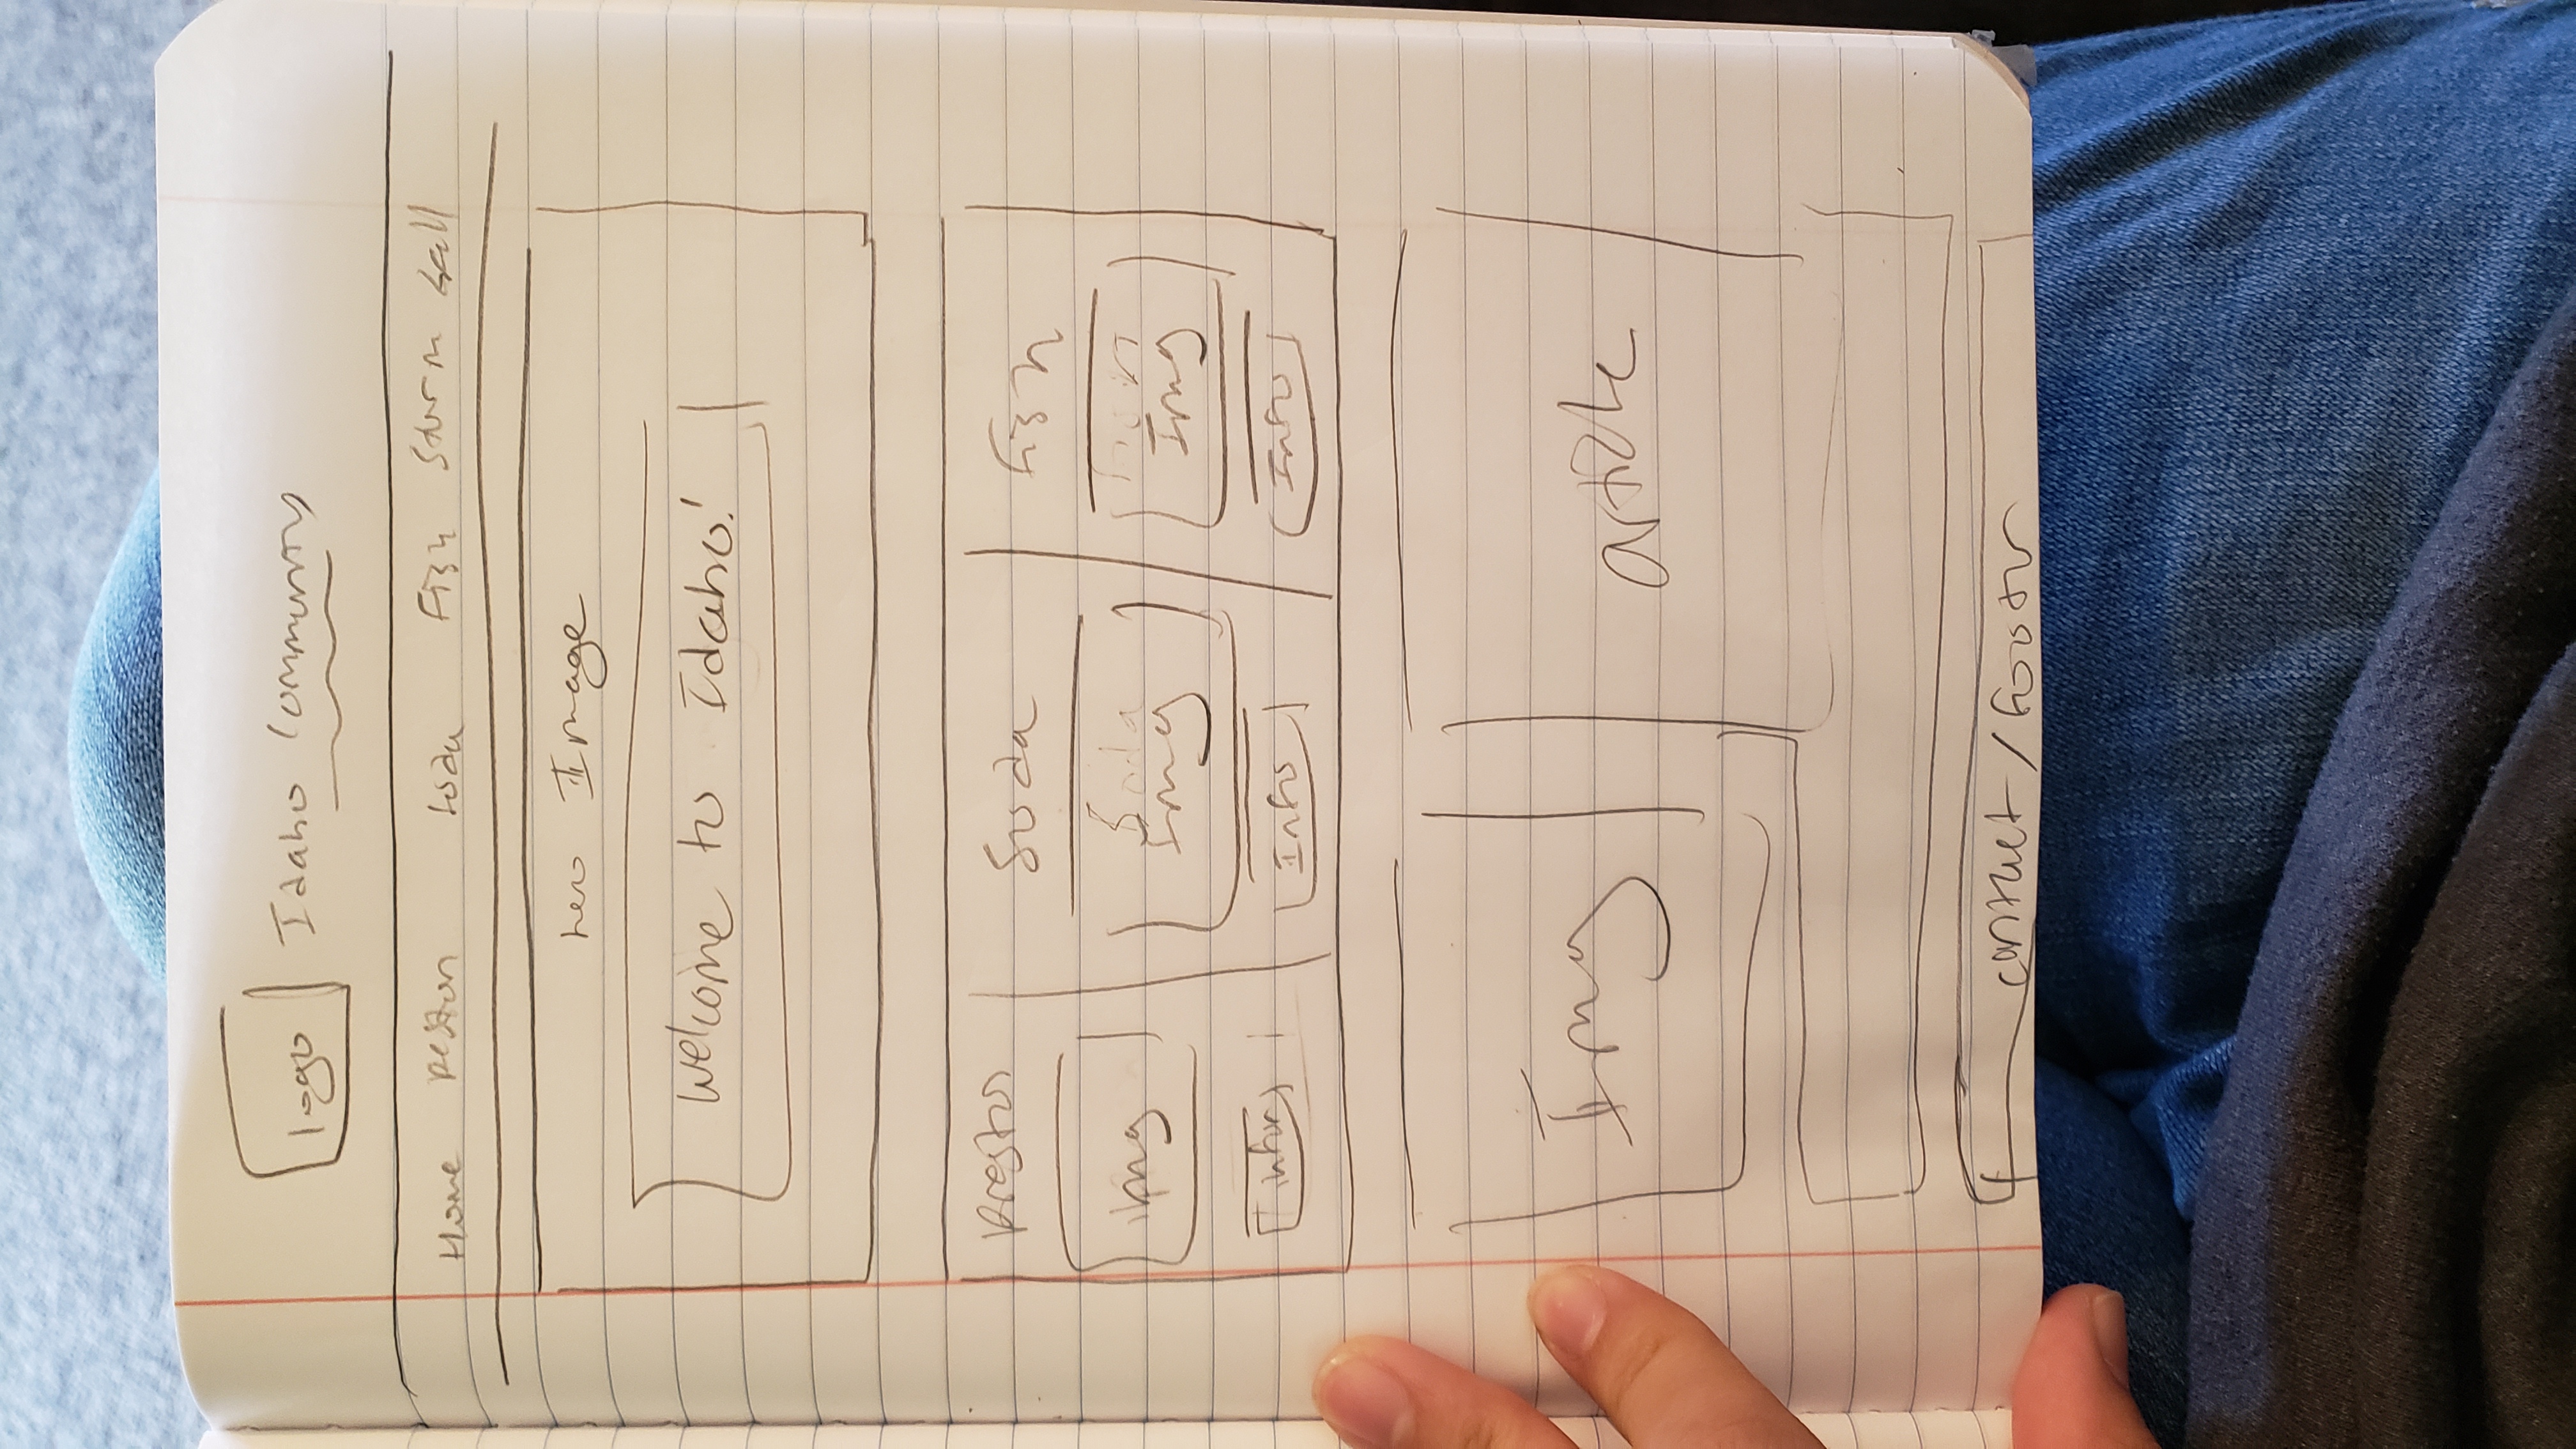 logo Idaho Community
Home Preston Soda Fish Storm ball
hero Image
Welcome to Idaho!
Preston Soda Fish
img Soda Img Img
Info Info Info
Img article
contact / footer